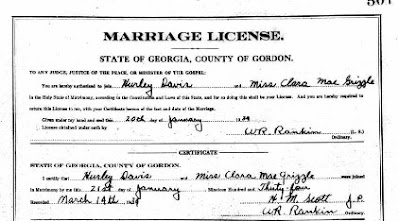 501
MARRIAGE LICENSE.
STATE OF GEORGIA, COUNTY OF GORDON.
TO ANY JUDGE, JUSTICE OF THE PEACE, OR MINISTER OF THE GOSPEL:
You are hereby authorized to join Hurley Davis and Miss Clara Mae Grizzle
in the Holy State of Matrimony, according to the Constitution and Laws of the State, and for so doing this shall be your License. And you are hereby required to
return this License to me, with your Certificate hereon of the fact and date of the Marriage.
Given under my hand and seal this 20th day of January 1934
License obtained under oath by W.R. Rankin (L. S.)
Ordinary.
CERTIFICATE
STATE OF GEORGIA, COUNTY OF GORDON.
I certify that Hurley Davis and Miss Clara Mae Grizzle were joined
in Matrimony by me this 21st day of January Nineteen Hundred and Thirty four
Recorded March 14th 1934 H. M. Scott J. P.
W.R. Rankin Ordinary.